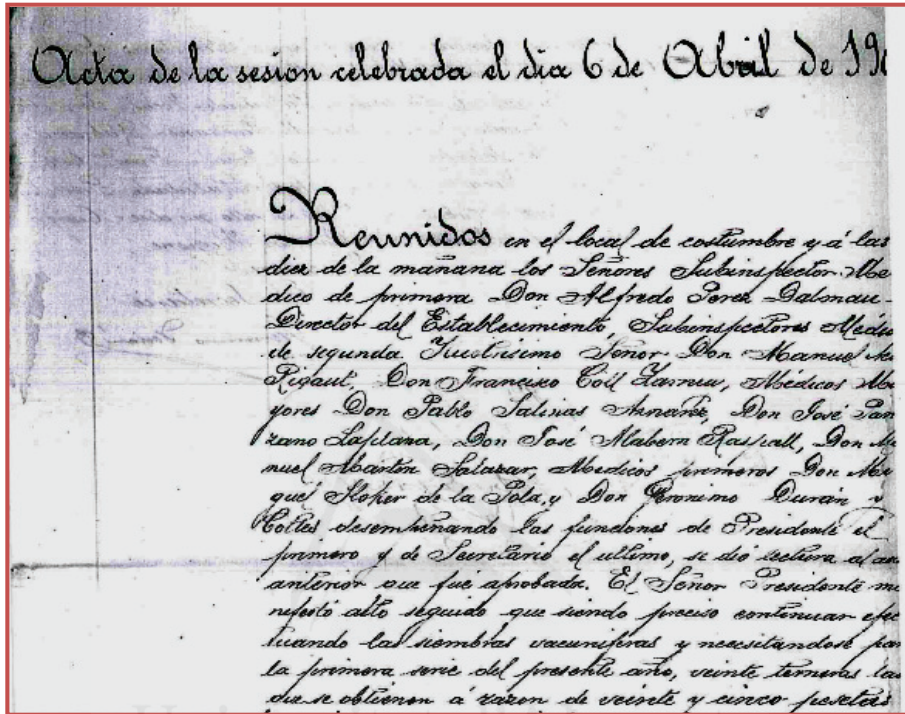 Acta de la sesion celebrada el dia 6 de Abril de 19
Reunidos en el local de costumbre y á las
diez de la mañana los Señores Subinspector Me
dico de primera Don Alfredo Perez Dalmau
Director del Establecimiento, Subinspectores Medic
de segunda Señor Don Manuel
Rigaut, Don Francisco Coll Médicos Ma
yores Don Pablo Salinas Aznarez, Don José Pan
zano Laplana, Don José Mabern Raspall, Don Ma
nuel Martin Salazar, Medicos primeros Don Mi
guel Sloker de la Pola, y Don Geronimo Durán y
Cottes desempeñando las funciones de Presidente el
primero y de Secretario el ultimo, se dió lectura al ac
anterior que fue aprobada. El Señor Presidente ma
nifestó seguido que siendo preciso continuar efec
tuando las siembras vacuniferas y necesitandose par
la primera serie del presente año, veinte terneras las
que se obtienen á razon de veinte y cinco pesetas